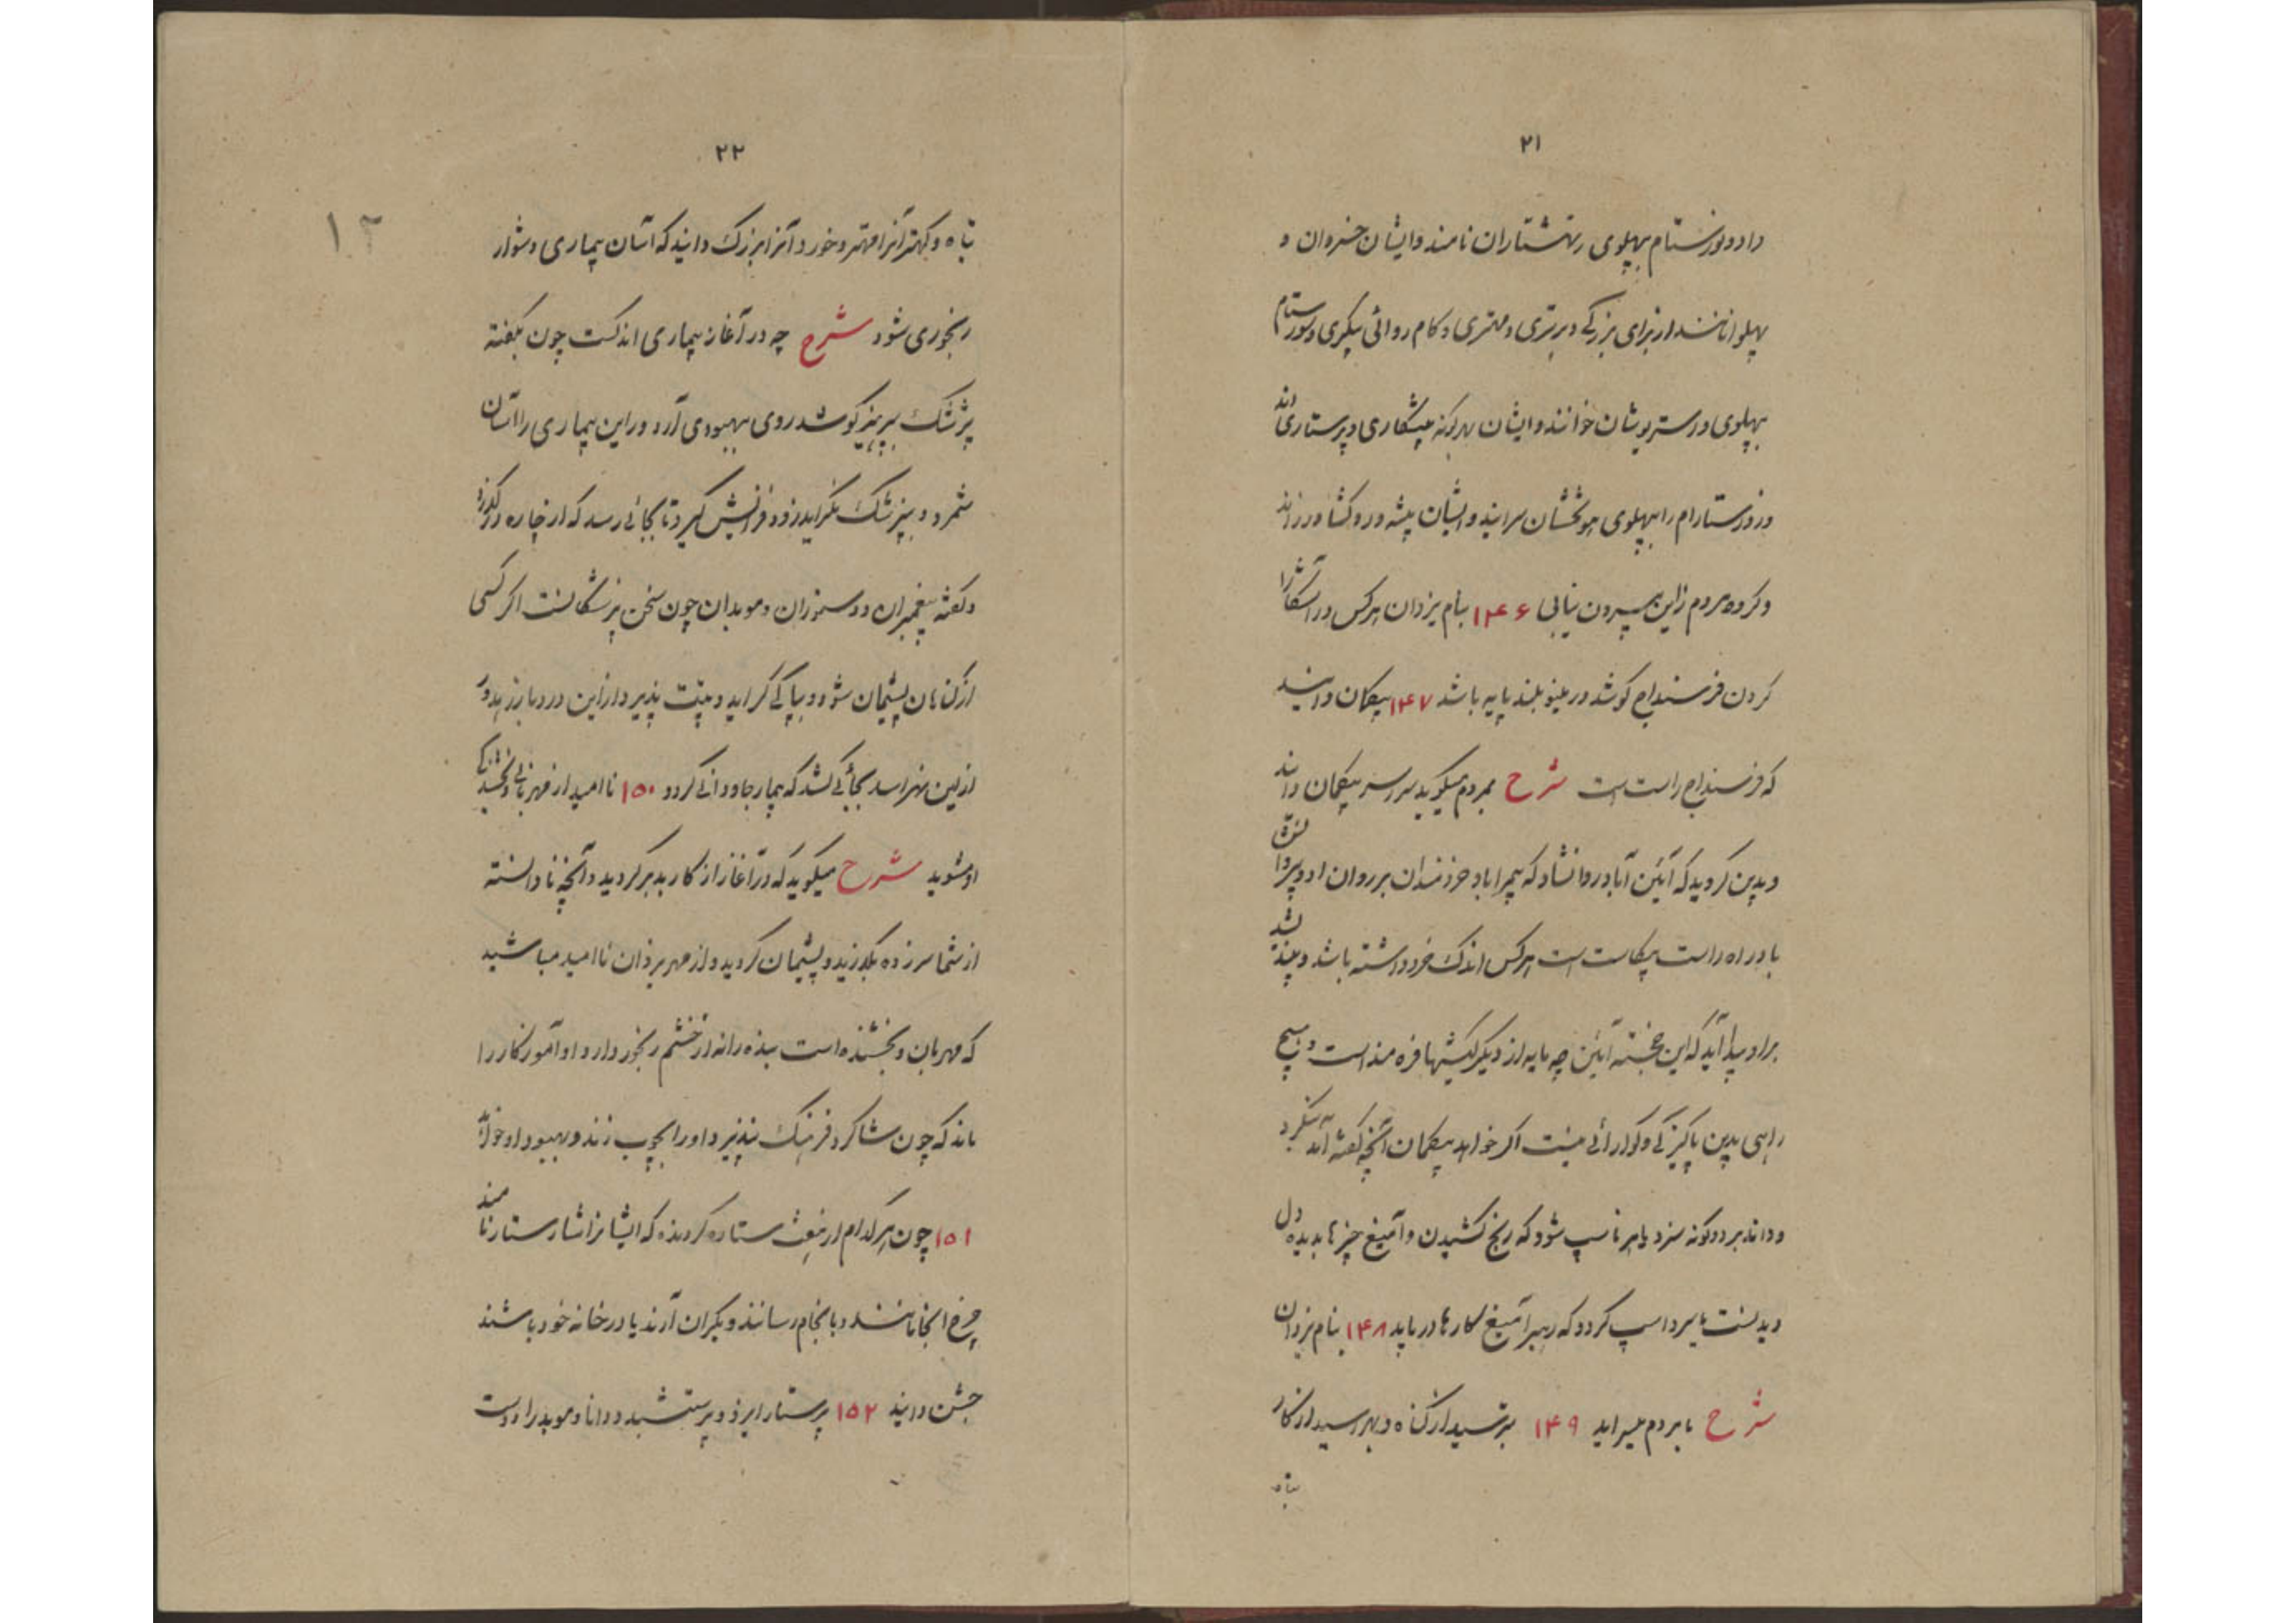 ۲۱
داد و نورستام بپهلوی رتهشتاران نامند و ایشان خسروان و
پهلوانانند از برای بزرگی و برتری و مهتری و کام روائی پیکری و سورستام
بپهلوی و استریوشان خوانند و ایشان هرگونه پیشکاری و پرستاری اند
و روزستارام را بپهلوی هوتخشان سرایند و ایشان پیشه ور و کشاورز اند
و گروه مردم زاین بیرون نیابی ۱۴۶ بنام یزدان هر کس در آشکارا
کردن فرسنداج کوشد در مینو بلند پایه باشد ۱۴۷ بیگمان دانید
که فرسنداج راست است شرح بمردم میگوید سراسر بیگمان دانید
و بدین گروید که آئین آباد روانشاد که پیمبر آباد خرزندان بر روان او و پیروانش
باد راه راست بیکاست است هر کس اندک خرد داشته باشد و بیند
بر او پیدا آید که این خجسته آئین چه مایه از دیگر کیشها فره مند است و هیچ
راهی بدین پاکیزگی و گوارائی نیست اگر خواهد بیگمان آنچه گفته آمد بنگرد
و داند بر دو گونه سزد یا هرتاسپ شود که رنج کشیدن و آمیغ چیزها بدیده دل
دیدنست یا سرداسپ گردد که رهبر آمیغ کارها دریابد ۱۴۸ بنام یزدان
شرح با مردم میسراید ۱۴۹ بترسید از گناه و بهراسید از کار
تباه
۲۲
تباه و کهتر آنرا مهتر و خورد آنرا بزرگ دانید که آسان بیماری دشوار
رنجوری شود شرح چه در آغاز بیماری اندکست چون بگفته
پزشک بپرهیز کوشد روی ببهبودی آرد ور این بیماری را آسان
شمرد و بپزشک نگراید زود فزایش گیرد تا بجائی رسد که از چاره درگذرد
و گفته پیغمبران و دستوران و موبدان چون سخن پزشکانست اگر کسی
از گناهان پشیمان شود و بپاکی گراید و پتت پذیرد از این درد باز رهد ور
از این نهراسد بجائی کشد که بیمار جاودانی گردد ۱۵۰ ناامید از مهربانی و بخشندگی
او مشوید شرح میگوید که در آغاز از کار بد برگردید و آنچه نادانسته
از شما سر زده بگذرید و پشیمان گردید و از مهر یزدان ناامید مباشید
که مهربان و بخشنده است بنده را نه از خشم رنجور دارد او آموزگار را
ماند که چون شاگرد فرهنگ نپذیرد او را بچوب زند و بهبود او خواهد
۱۵۱ چون هر کدام از هفت ستاره گردنده که ایشانرا شارستار نامند
چرخ انجامانند و بانجام رسانند و بکران آرند یا در خانه خود باشند
جشن دانید ۱۵۲ پرستار ایزد و پرستشبد و دانا و موبد را دوست
۱۲